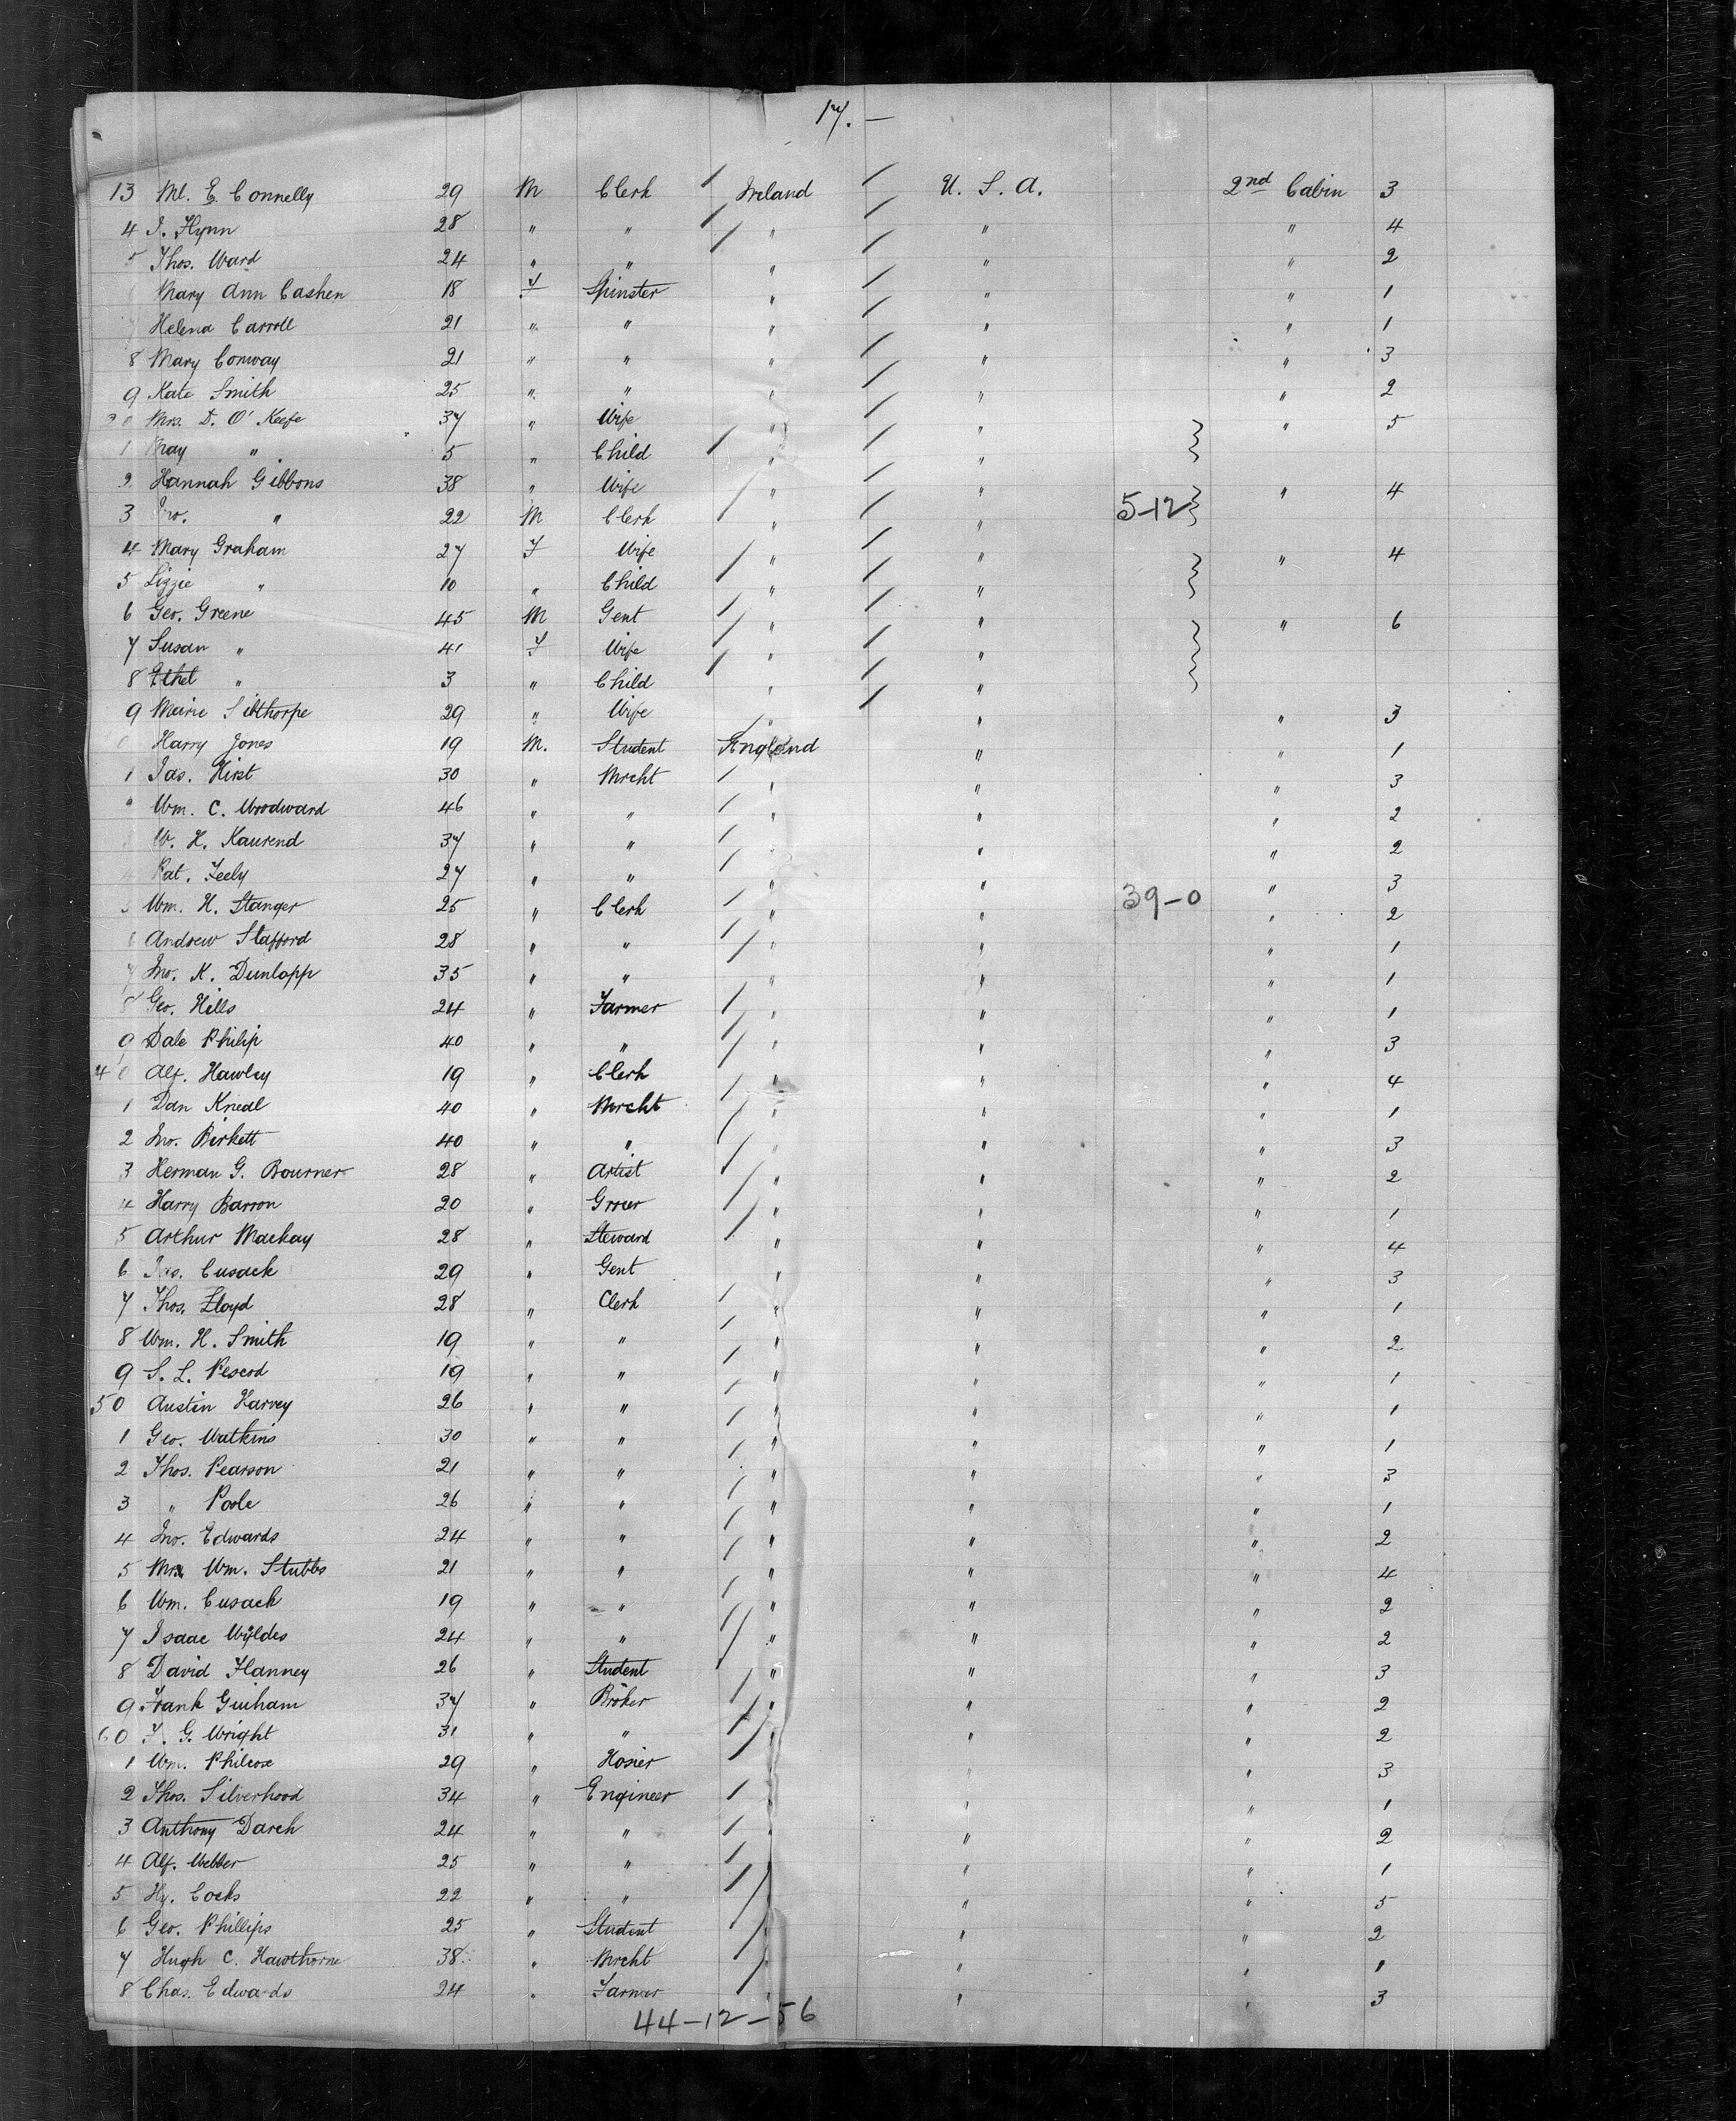 17. —
13 Ml. E. Connelly 29 M Clerk Ireland U. S. A. 2nd Cabin 3
4 J. Flynn 28 " " " " " 4
5 Thos. Ward 24 " " " " " 2
Mary Ann Cashen 18 F Spinster " " " 1
7 Helena Carroll 21 " " " " " 1
8 Mary Conway 21 " " " " " 3
9 Kate Smith 25 " " " " " 2
20 Mrs. D. O' Keefe 37 " Wife " " " 5
1 May " 5 " Child " "
2 Hannah Gibbons 38 " Wife " " " 4
3 Jno. " 22 M Clerk " " 5-12
4 Mary Graham 27 F Wife " " " 4
5 Lizzie " 10 " Child " "
6 Geo. Greene 45 M Gent " " " 6
7 Susan " 41 F Wife " "
8 Ethel " 3 " Child " "
9 Marie Silthorpe 29 " Wife " " " 3
0 Harry Jones 19 M. Student England " " 1
1 Jas. Hirst 30 " Mrcht " " " 3
2 Wm. C. Woodward 46 " " " " " 2
3 W. H. Kaurend 37 " " " " " 2
4 Pat. Feely 27 " " " " " 3
5 Wm. H. Stanger 25 " Clerk " " 39-0 " 2
6 Andrew Stafford 28 " " " " " 1
7 Jno. K. Dunlapp 35 " " " " " 1
8 Geo. Hills 24 " Farmer " " " 1
9 Dale Philip 40 " " " " " 3
40 Alf. Hawley 19 " Clerk " " " 4
1 Dan Kneal 40 " Mrcht " " " 1
2 Jno. Birkett 40 " " " " " 3
3 Herman G. Bourner 28 " Artist " " " 2
4 Harry Barron 20 " Grocer " " " 1
5 Arthur Mackay 28 " Steward " " " 4
6 Jas. Cusack 29 " Gent " " " 3
7 Thos. Lloyd 28 " Clerk " " " 1
8 Wm. H. Smith 19 " " " " " 2
9 S. L. Pescod 19 " " " " " 1
50 Austin Harvey 26 " " " " " 1
1 Geo. Watkins 30 " " " " " 1
2 Thos. Pearson 21 " " " " " 3
3 " Poole 26 " " " " " 1
4 Jno. Edwards 24 " " " " " 2
5 Wm. Stubbs 21 " " " " " 4
6 Wm. Cusack 19 " " " " " 2
7 Isaac Wyldes 24 " " " " " 2
8 David Flanney 26 " Student " " " 3
9 Frank Guiham 37 " Broker " " " 2
60 F. G. Wright 31 " " " " " 2
1 Wm. Philcox 29 " Hosier " " " 3
2 Thos. Silverhood 34 " Engineer " " " 1
3 Anthony Darch 24 " " " " " 2
4 Alf. Webber 25 " " " " " 1
5 Hy. Cocks 22 " " " " " 5
6 Geo. Phillips 25 " Student " " " 2
7 Hugh C. Hawthorne 38 " Mrcht " " " 1
8 Chas. Edwards 24 " Farmer " " " 3
44-12-56